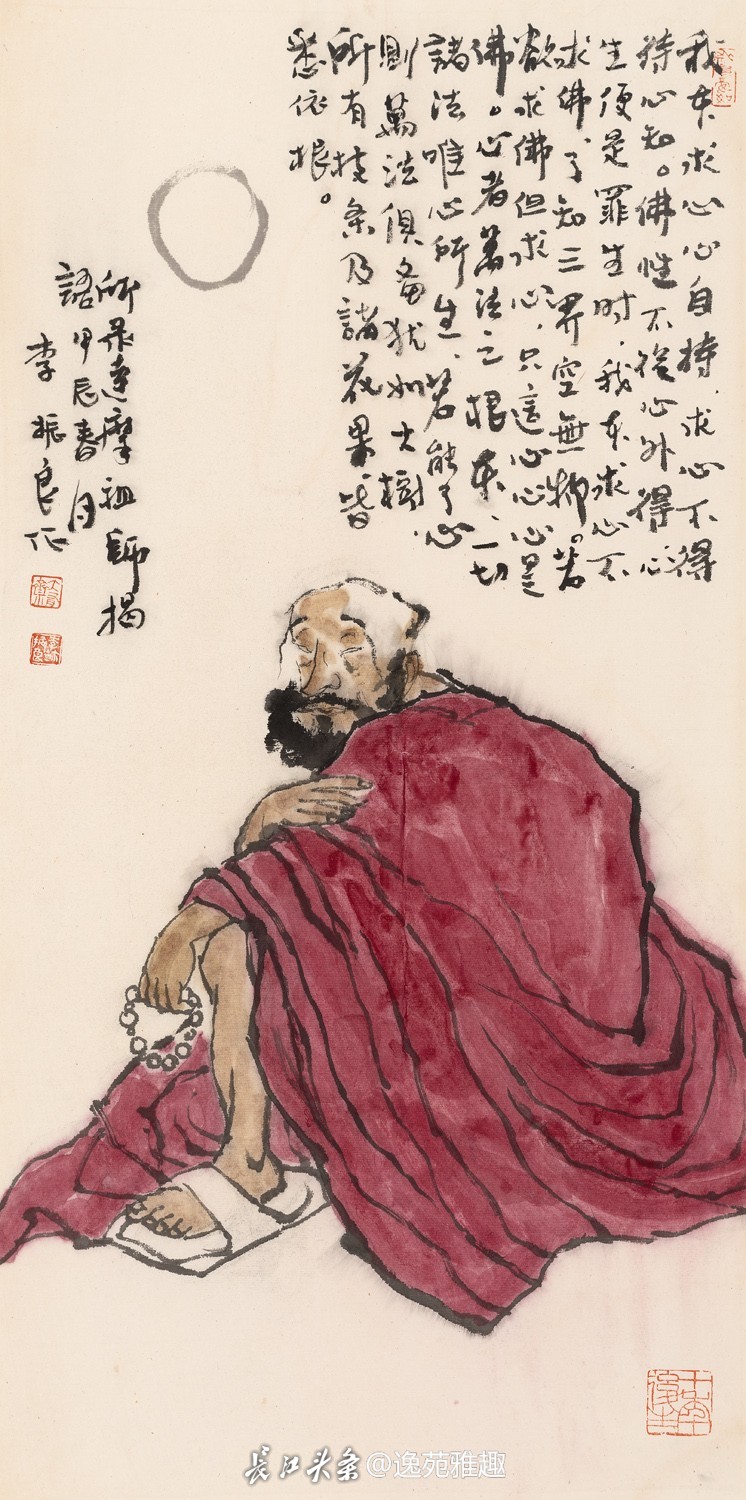 我本求心心自持.求心不得
待心知。佛性不從心外得心
生便是罪生时.我本求心不
求佛了知三界空無物。若
欲求佛但求心,只這心心心是
佛。心者萬法之根本、一切
諸法唯心所生、若能了心
則萬法俱备犹如大樹.
所有枝条及諸花果皆
悉依根。
所录達摩祖師揭
語甲辰春月
李振良作
長江头条@逸苑雅趣